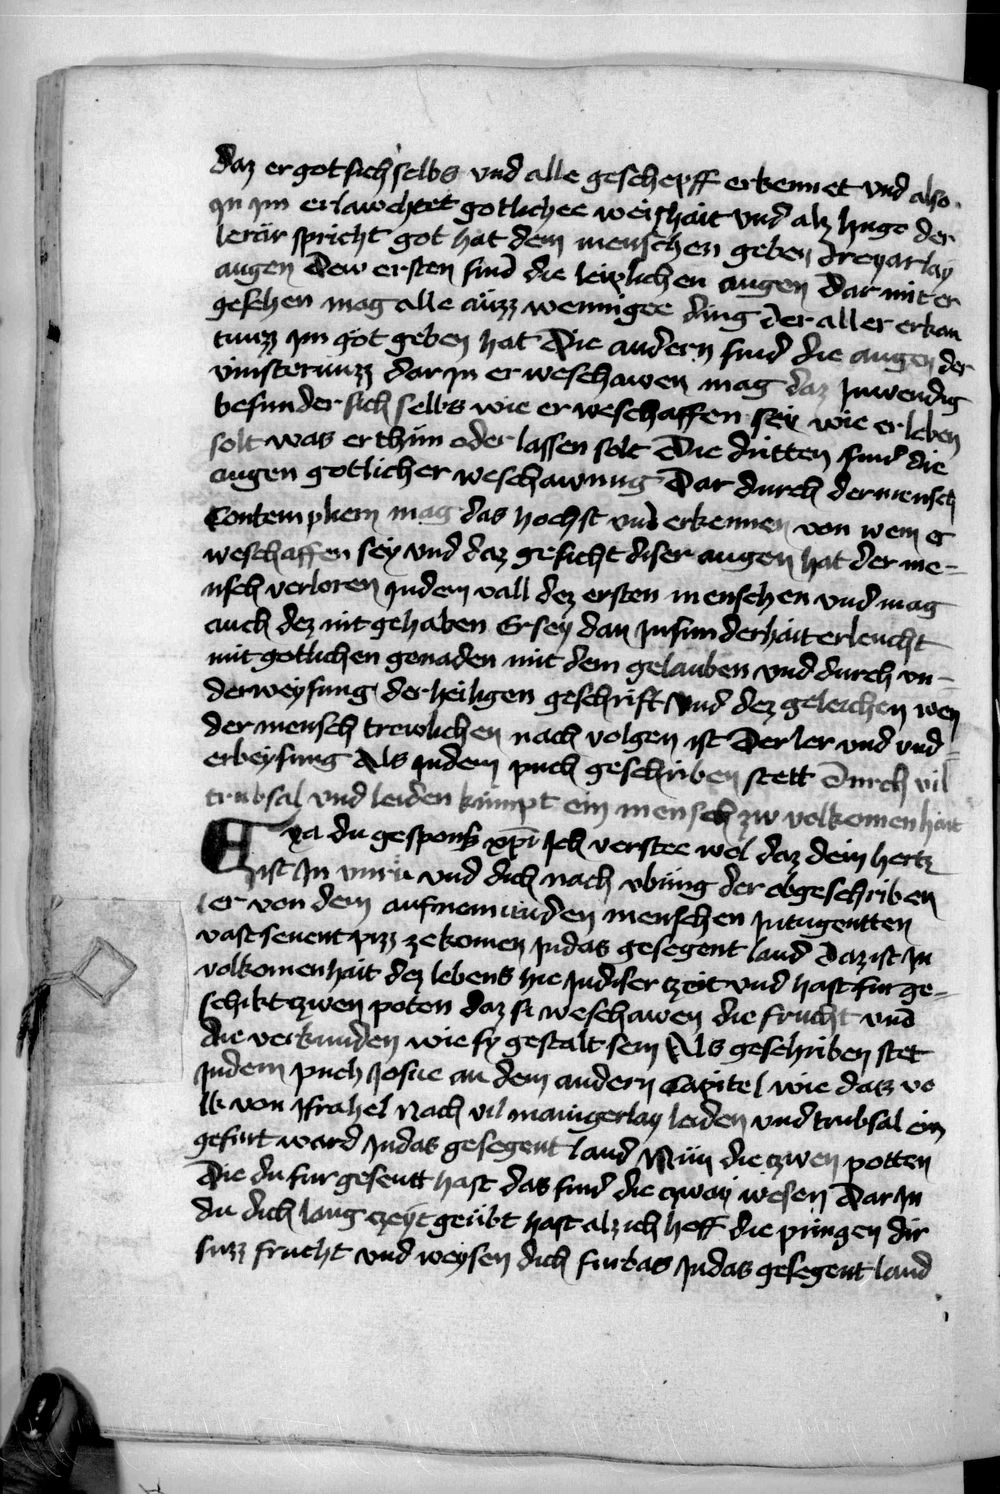 daz er got sich selbs vnd alle gescheppff erkennet vnd also
Jn Jm erlawchtet gotlichee weishait vnd alz hugo der
lerär spricht got hat dem menschen geben dreyarlay
augen Dew ersten sind die leiplichen augen Dar mit er
gesehen mag alle auzz wenigee ding der aller erkan
tnuzz Jm got geben hat Die andern sind die augen der
vinsternuzz dar Jn er weschawen mag daz Jnwendig
besunder sich selbs wie er weschaffen sey wie er leben
solt was er thun oder lassen solt Die dritten sind die
augen gotlicher weschawnng Dar durch der mensch
Contempliern mag das hochst vnd erkennen von wem er
weschaffen sey vnd daz gesicht diser augen hat der me-
nsch verloren Jndem vall dez ersten menschen vnd mag
auch dez nit gehaben Er sey dan Jnsunderhait erleucht
mit gotlichen genaden mit dem gelauben vnd durch vn-
derweysung der heiligen geschrift vnd dez geleichen wen
der mensch trewlichen nach volgen ist Der ler vnd vnd-
erbeysung Als Jndem puch geschriben stett Durch vil
trubsal vnd leiden kumpt ein mensch zw volkomenhait
Eya du gespons xpi Jch verstee wol daz dein hertz
ist Jn vnru vnd dich nach vbung der obgeschriben
ler von dem aufnemunden menschen Jntugentten
vast senent pizz ze komen Jndas gesegent land Daz ist Jn
volkomenhait dez lebens hie Jndiser zeit vnd hast fur ge-
schikt zwen poten daz si weschawen die frucht vnd
die verkunden wie sy gestalt sein Als geschriben stet
Jndem puch Josue an dem andern Capitel wie das vo
lk von Jsrahel Nach vil mainigerlay leiden vnd trubsal ein
gefurt ward Jndas gesegent land Nun die zwen potten
Die du fur gesentt hast das sind die zway wesen Dar Jn
du dich lang czeyt geubt hast alz ich hoff die pringen dir
suzz frucht vnd weysen dich furbas Jndas gesegent land